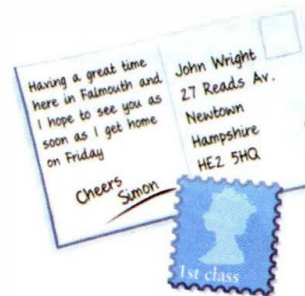 Having a great time
here in Falmouth and
I hope to see you as
soon as I get home
on Friday
Cheers
Simon
John Wright
27 Reads Av.
Newtown
Hampshire
HE2 5HQ
1st class